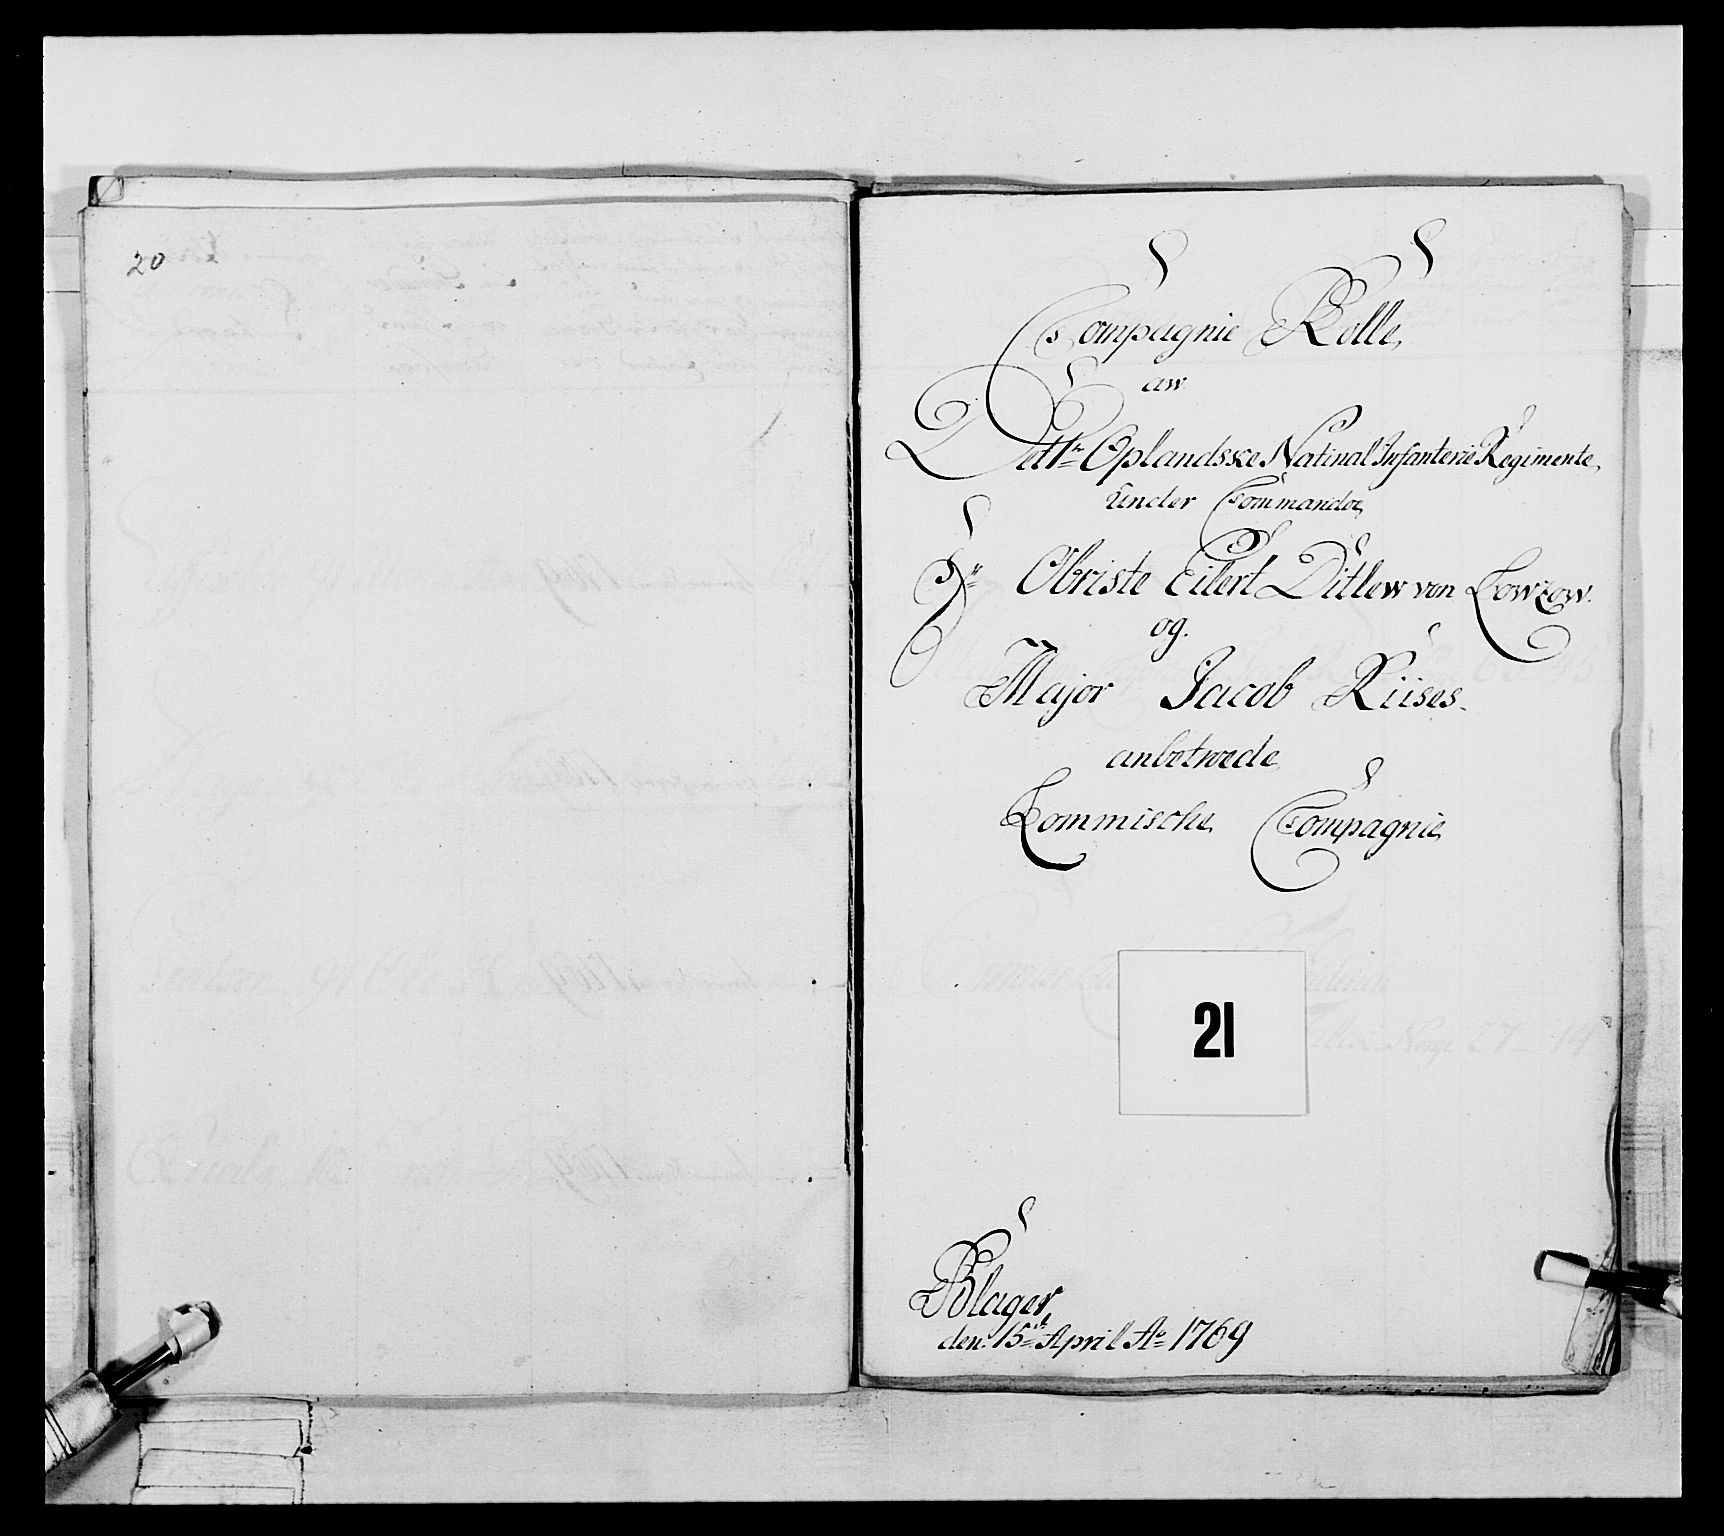 20
Compagnie Rolle,
aw
Det 1te Oplandsske Natinal Infanterie Regimente,
under Commandoe
Hr Obriste Eilert Ditlew von Lowzow.
og.
Major Jacob Riises.
anbetroede
Lommische Compagnie
21
Blager,
den 15de April Ao 1769